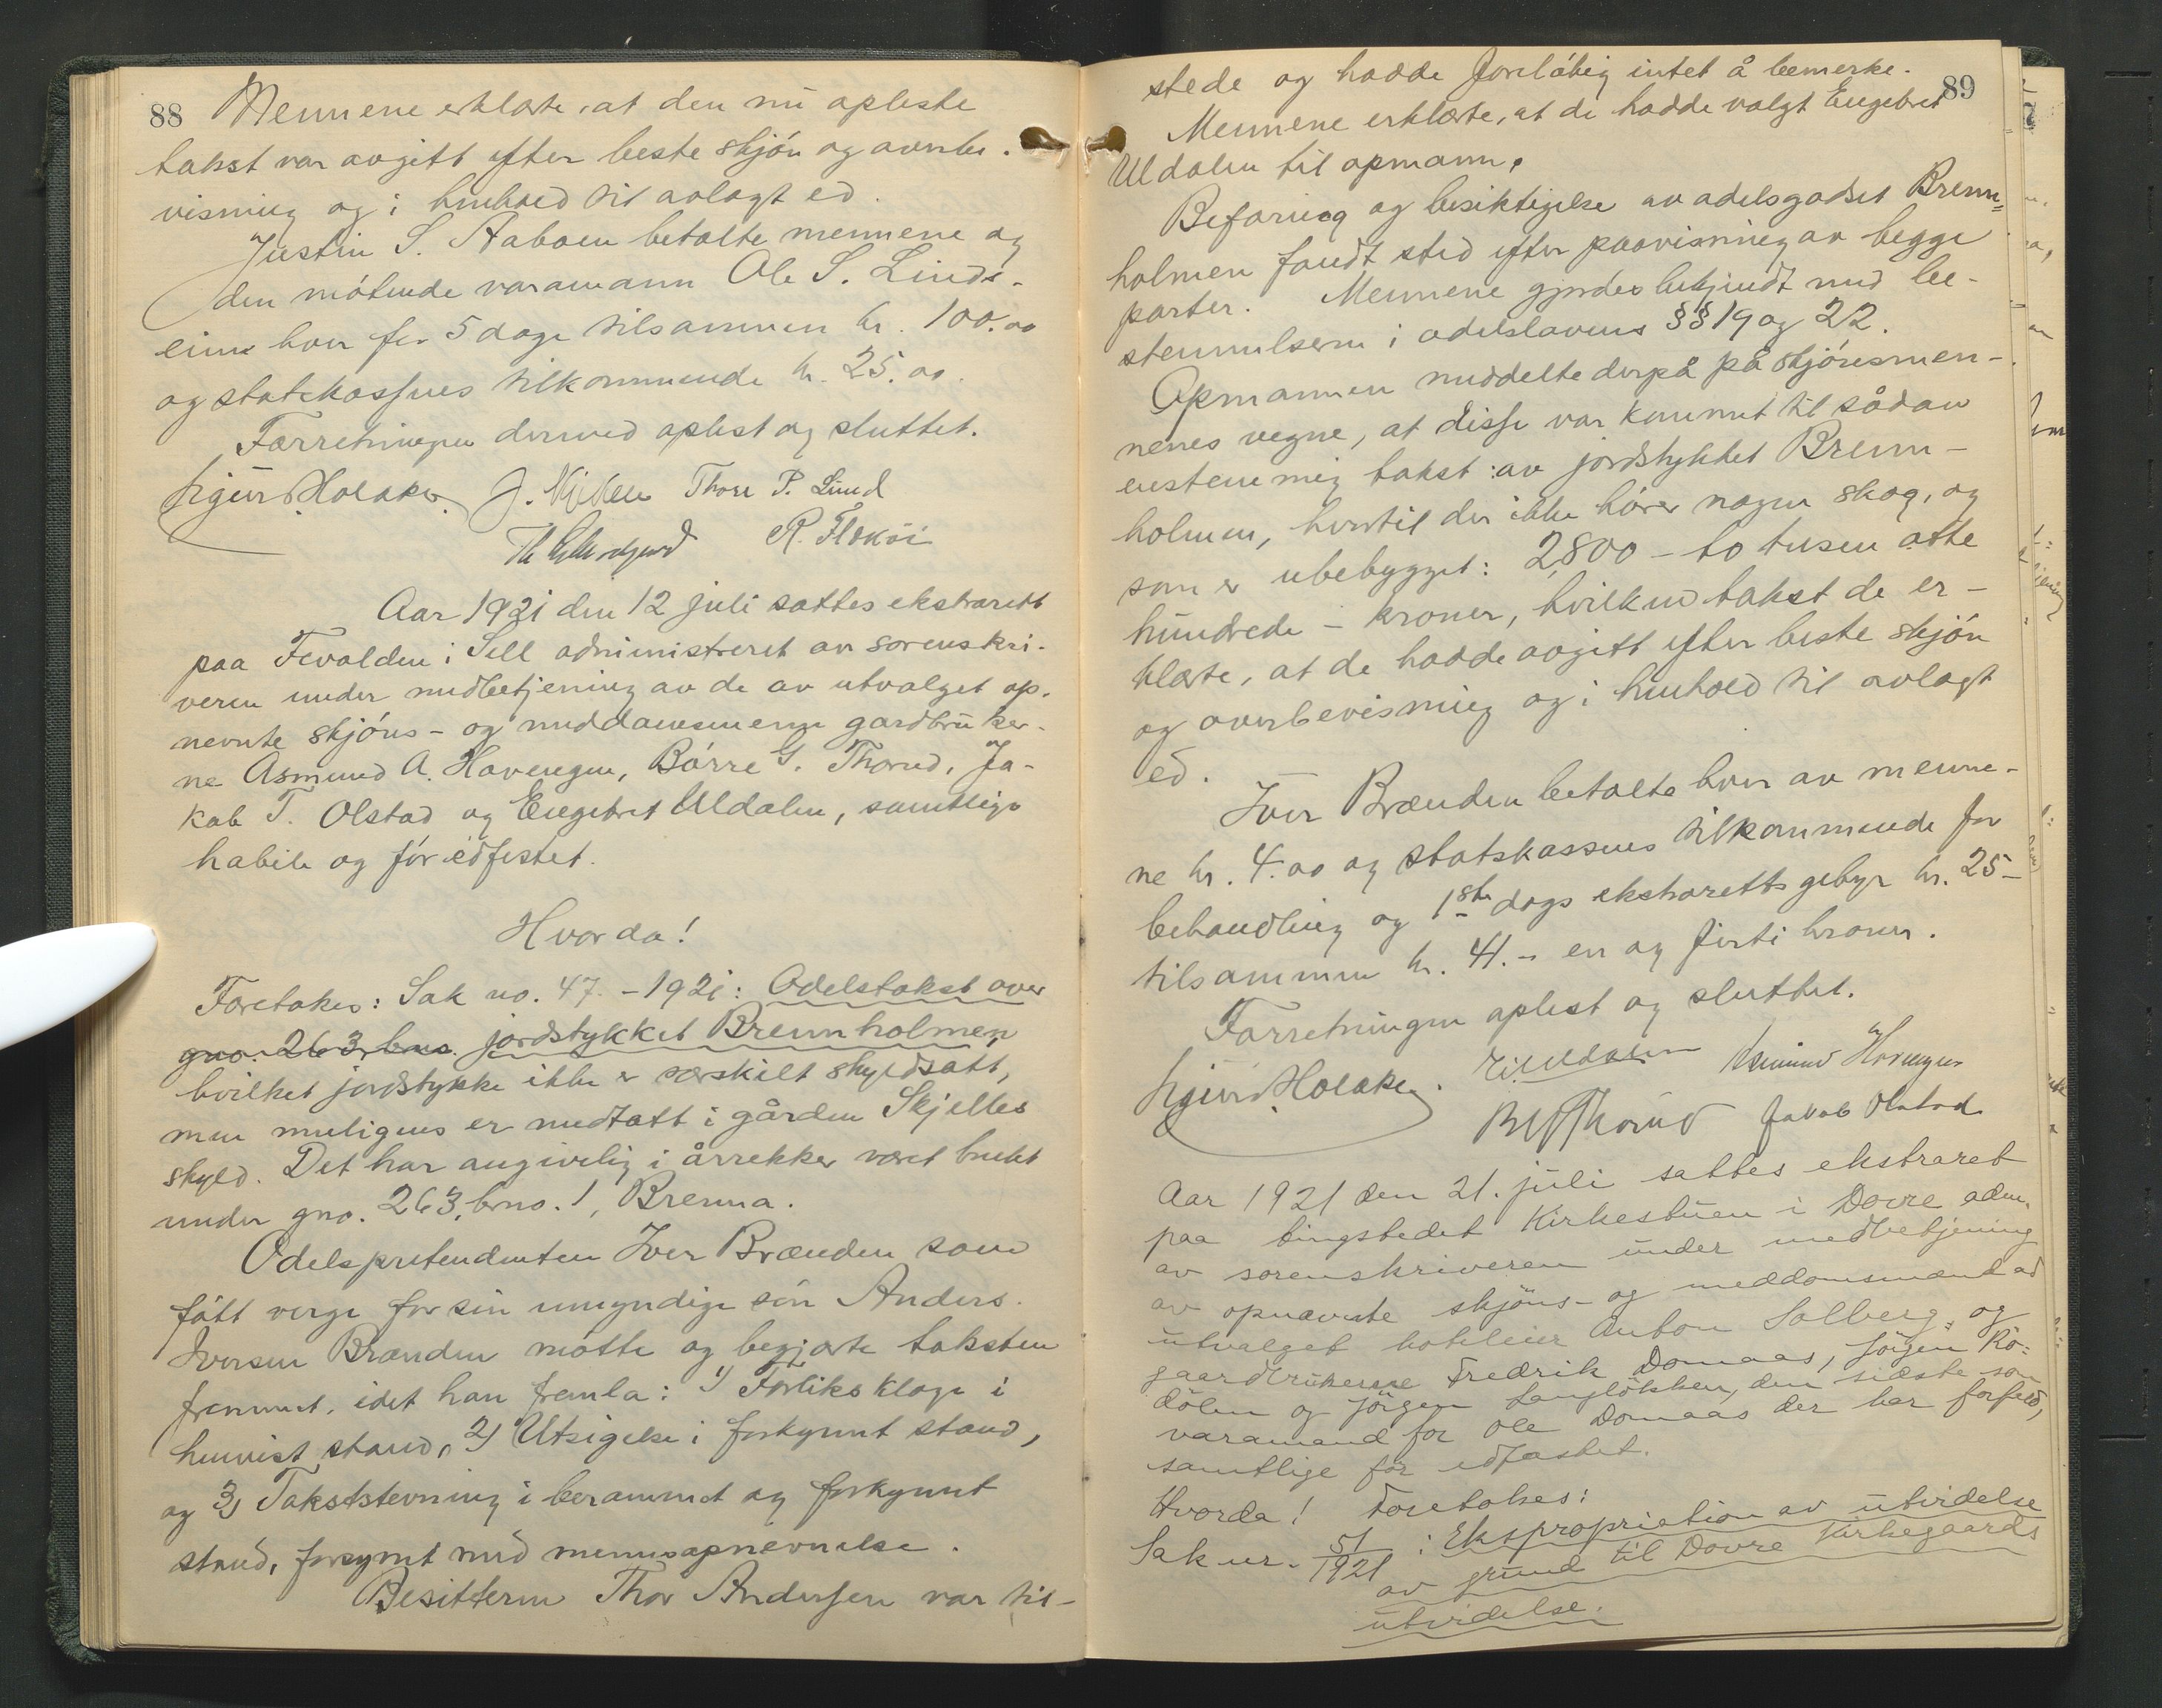 88 Mennene erklærte, at den nu oplæste
takst var avgitt efter beste skjøn og overbe-
visning og i henhold til avlagt ed.
Justin S. Aaboen betalte mennene og
den møtende varamann Ole S. Linds-
eine hver for 5 dage tilsammen kr. 100.00
og statskassens tilkommende kr. 25.00.
Forretningen dermed oplest og sluttet.
Sigurd Holaker. Thore P. Lund
R. Flækøi
Aar 1921 den 12 juli sattes ekstrarett
paa Fevolden i Sell administreret av sorenskri-
veren under medbetjening av de av utvalget op-
nevnte skjøns- og meddomsmenn gardbruker-
ne Asmund A. Havengen, Børre G. Thorud, Ja-
kob T. Olstad og Engebret Uldalen, samtlige
habile og før edfestet.
Hvorda!
Foretokes: Sak no. 47. - 1921: Odelstakst over
gno. 263, bno. jordstykket Brennholmen,
hvilket jordstykke ikke er særskilt skyldsatt,
men muligens er medtatt i gården Skjelles
skyld. Det har angivelig i årrekker været brukt
under gno. 263, bno. 1, Brenna.
Odelspretendenten Iver Brænden som
født verge for sin umyndige søn Anders
Iversen Brænden møtte og begjærte taksten
fremmet, idet han fremla: 1) Forliksklage i
henvist stand, 2) Utsigelse i forkynnt stand,
og 3) Takststevning i berammet og forkynnt
stand, forsynt med mennsopnevnelse.
Besitteren Thor Andersen var til-
89
stede og hadde foreløbig intet å bemerke.
Mennene erklærte, at de hadde valgt Engebret
Uldalen til opmann.
Befaring og besiktigelse av odelsgodset Brenn-
holmen fandt sted efter paavisning av begge
parter. Mennene gjordes bekjendt med be-
stemmelserne i odelslovens §§ 19 og 22.
Opmannen meddelte derpå på skjønsmen-
nenes vegne, at disse var kommet til sådan
enstemmig takst: av jordstykket Brenn-
holmen, hvortil der ikke hører nogen skog, og
som er ubebygget: 2800 - to tusen otte
hundrede - kroner, hvilken takst de er-
klærte, at de hadde avgitt efter beste skjøn
og overbevisning og i henhold til avlagt
ed.
Iver Brænden betalte hver av menne-
ne kr. 4.00 og statskassens tilkommende for
behandling og 1ste dags ekstraretts gebyr kr. 25-
tilsammen kr. 41.- en og førti kroner.
Forretningen oplest og sluttet.
Sigurd Holaker. E. Uldalen Asmund Havengen
B G Thorud Jakob Olstad
Aar 1921 den 21. juli sattes ekstraret
paa tingstedet Kirkestuen i Dovre adm.
av sorenskriveren under medbetjening
av opnævnte skjøns- og meddomsmænd av
utvalget hoteleier Anton Solberg, og
gaardbrukerne Fredrik Domaas, Jörgen Rö-
dölen og Jörgen Langlökken, den sidste som
varamand for Ole Domaas der har forfald,
samtlige för edfæstet.
Hvorda! Foretokes:
Sak nr. 51/1921: Ekspropriation av utvidelse
av grund til Dovre kirkegaards
utvidelse.